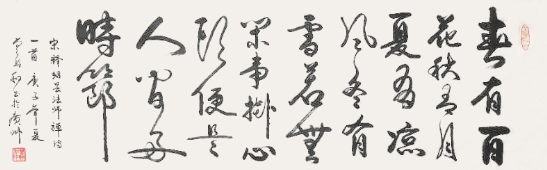 春有百
花秋有月
夏有凉
风冬有
雪若无
闲事挂心
头便是
人间好
时节
宋释绍昙法师禅诗
一首庚子年夏
于广州